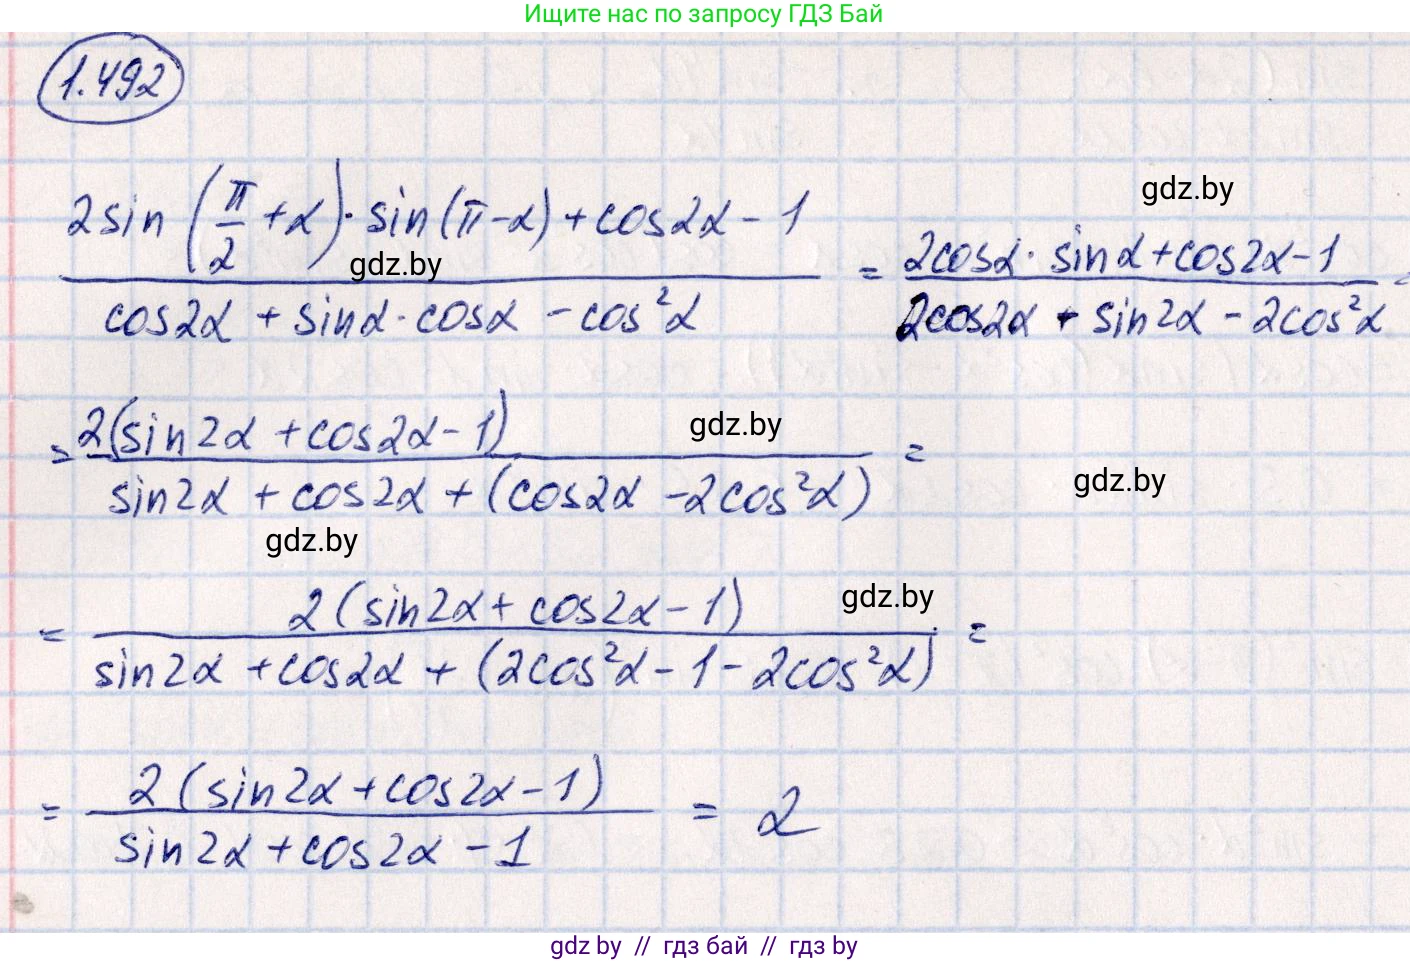 Ищите нас по запросу ГДЗ Бай
1.492
gdz.by
2sin (π/2 + α) · sin(π - α) + cos2α - 1 / cos2α + sinα · cosα - cos²α = 2cosα · sinα + cos2α - 1 / 2cos2α + sin2α - 2cos²α =
gdz.by
= 2(sin2α + cos2α - 1) / sin2α + cos2α + (cos2α - 2cos²α) =
gdz.by
gdz.by
gdz.by
= 2(sin2α + cos2α - 1) / sin2α + cos2α + (2cos²α - 1 - 2cos²α) =
gdz.by
= 2(sin2α + cos2α - 1) / sin2α + cos2α - 1 = 2
gdz.by // гдз бай // гдз by